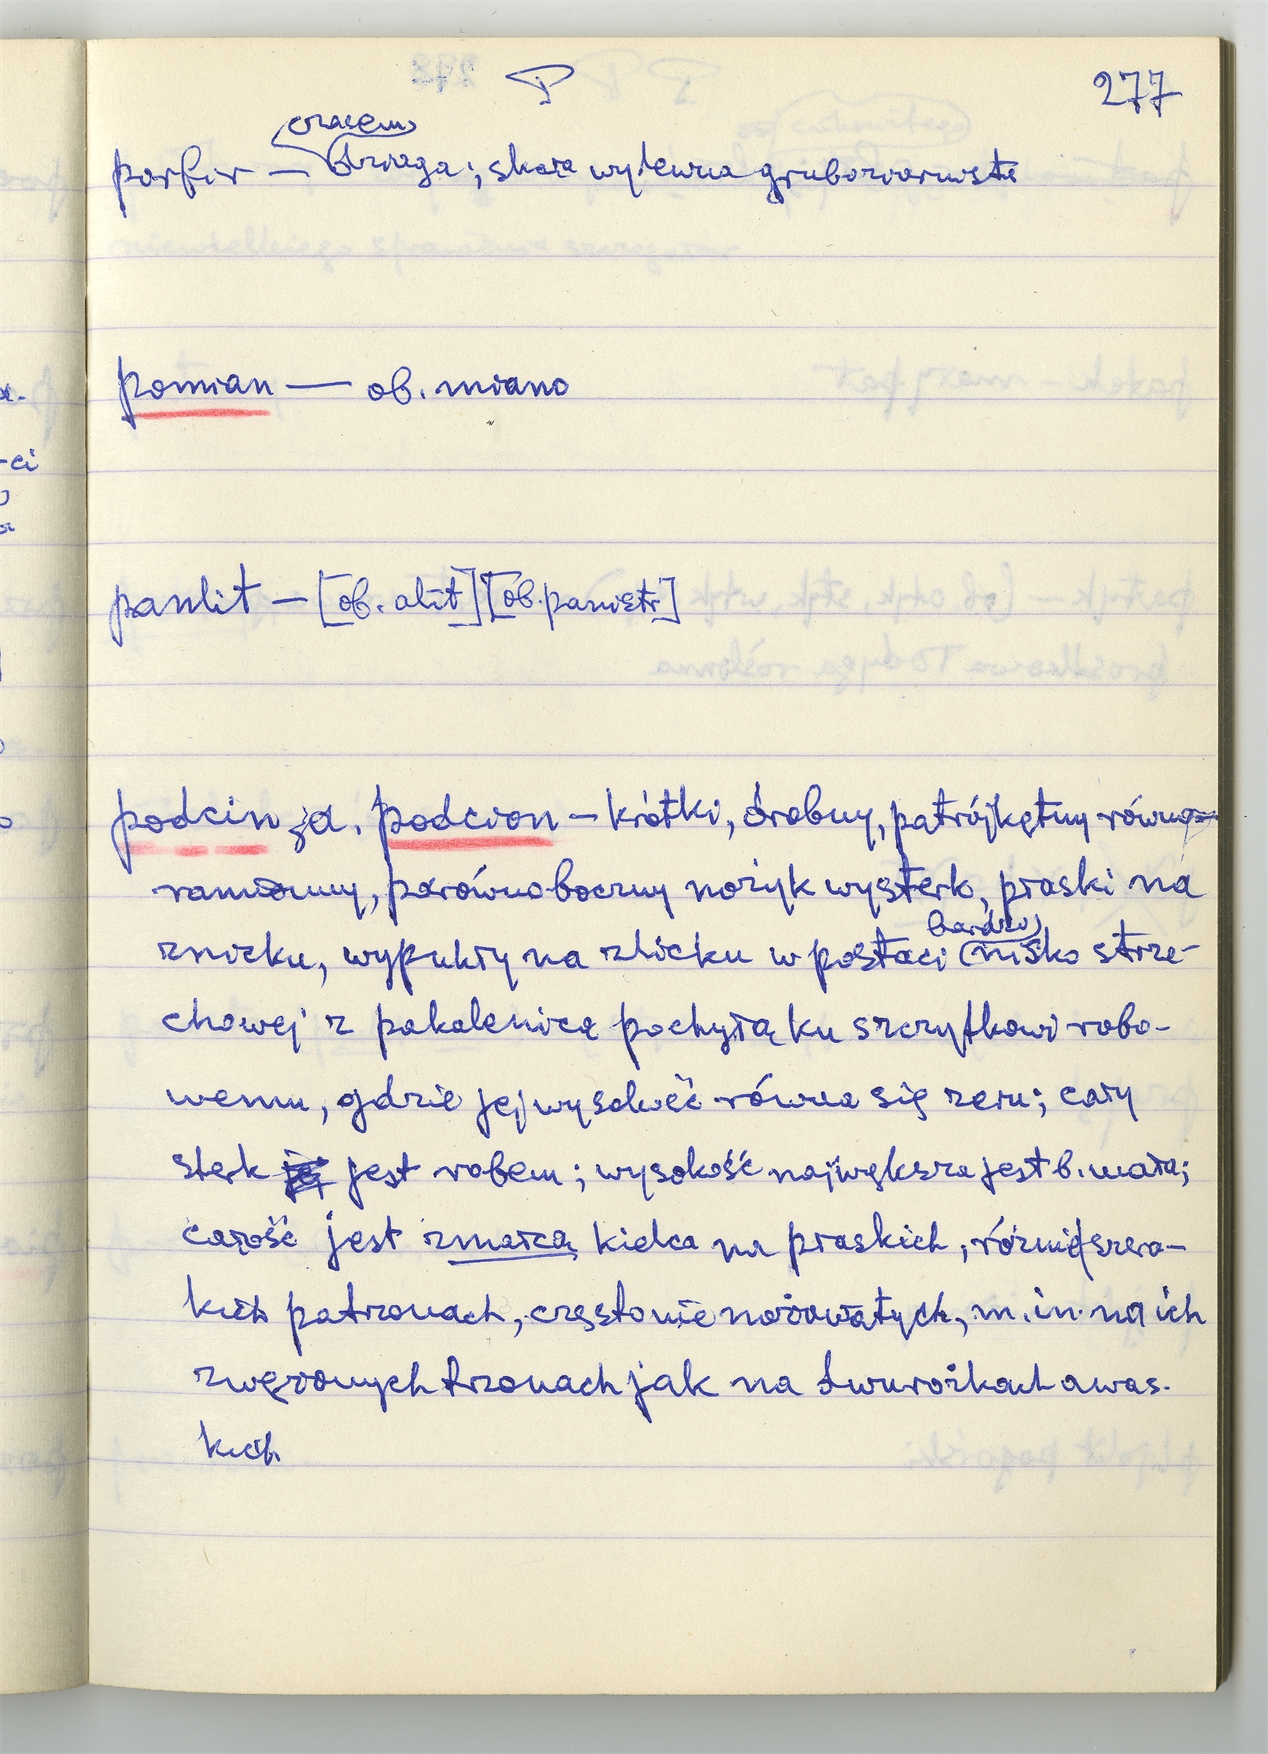 P
277
porfir — czasem
drzazga; skała wylewna gruboziarnista
pomian — ob. miano
panlit — [ob. alit] [ob.
podcin zd. podcion — krótki, drobny, patrójkętny równo-
ramienny, parównoboczny nożyk wysterk, płaski na
znicku, wypukły na zlicku w postaci (bardzo) nisko strze-
chowej z pakalenicą pochyłą ku szczytkowi robo-
wemu, gdzie jej wysokość równa się zeru; cały
sterk jest robem; wysokość największa jest b. mała;
całość jest zmałcą kielca na płaskich, różnieszero-
kich patrzonach, częstonie nożowatych, m. in. na ich
zwężonych trzonach jak na dwurożkach awas-
kich.